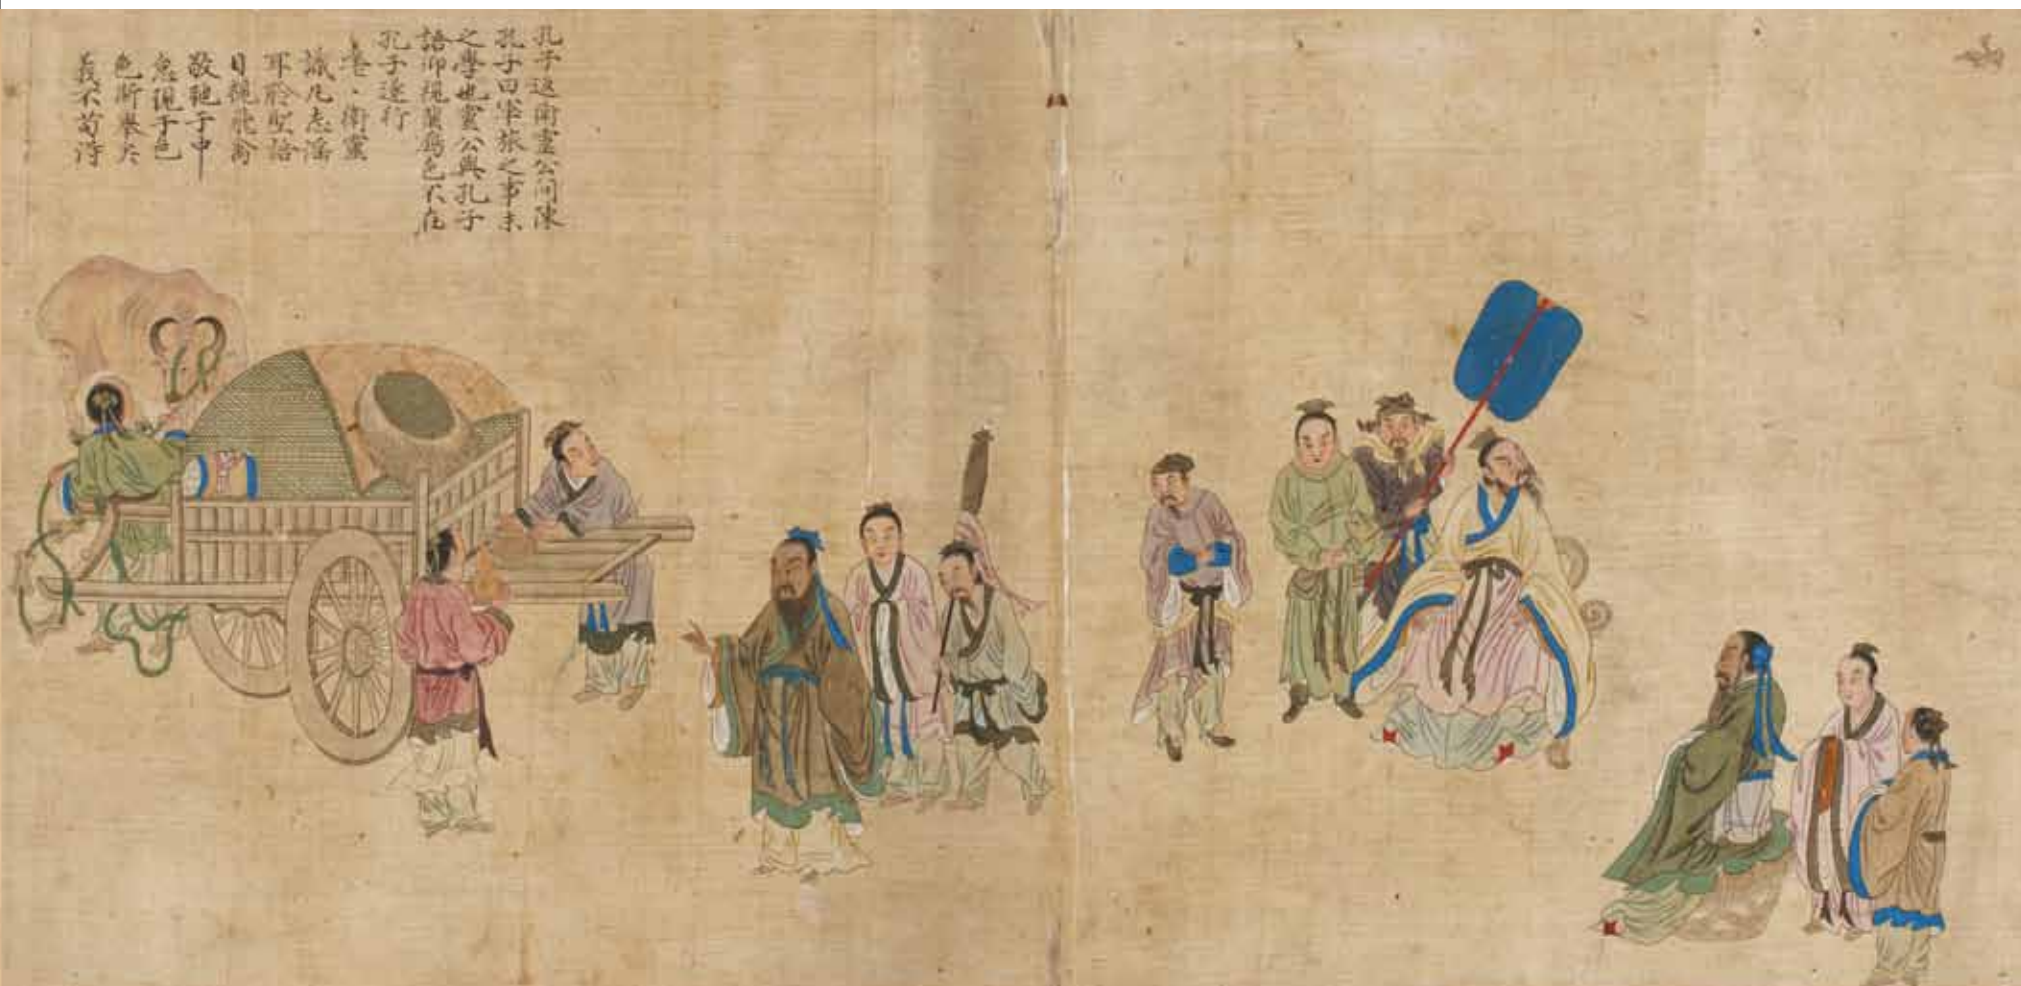 孔子返衛靈公問陳
孔子曰軍旅之事未
之學也靈公與孔子
語仰視蜚鴈色不在
孔子遂行
耄〻衛靈
識凡志滛
耳聆聖語
目視飛禽
敬弛于中
怠現于色
色斯舉矣
義不苟淂